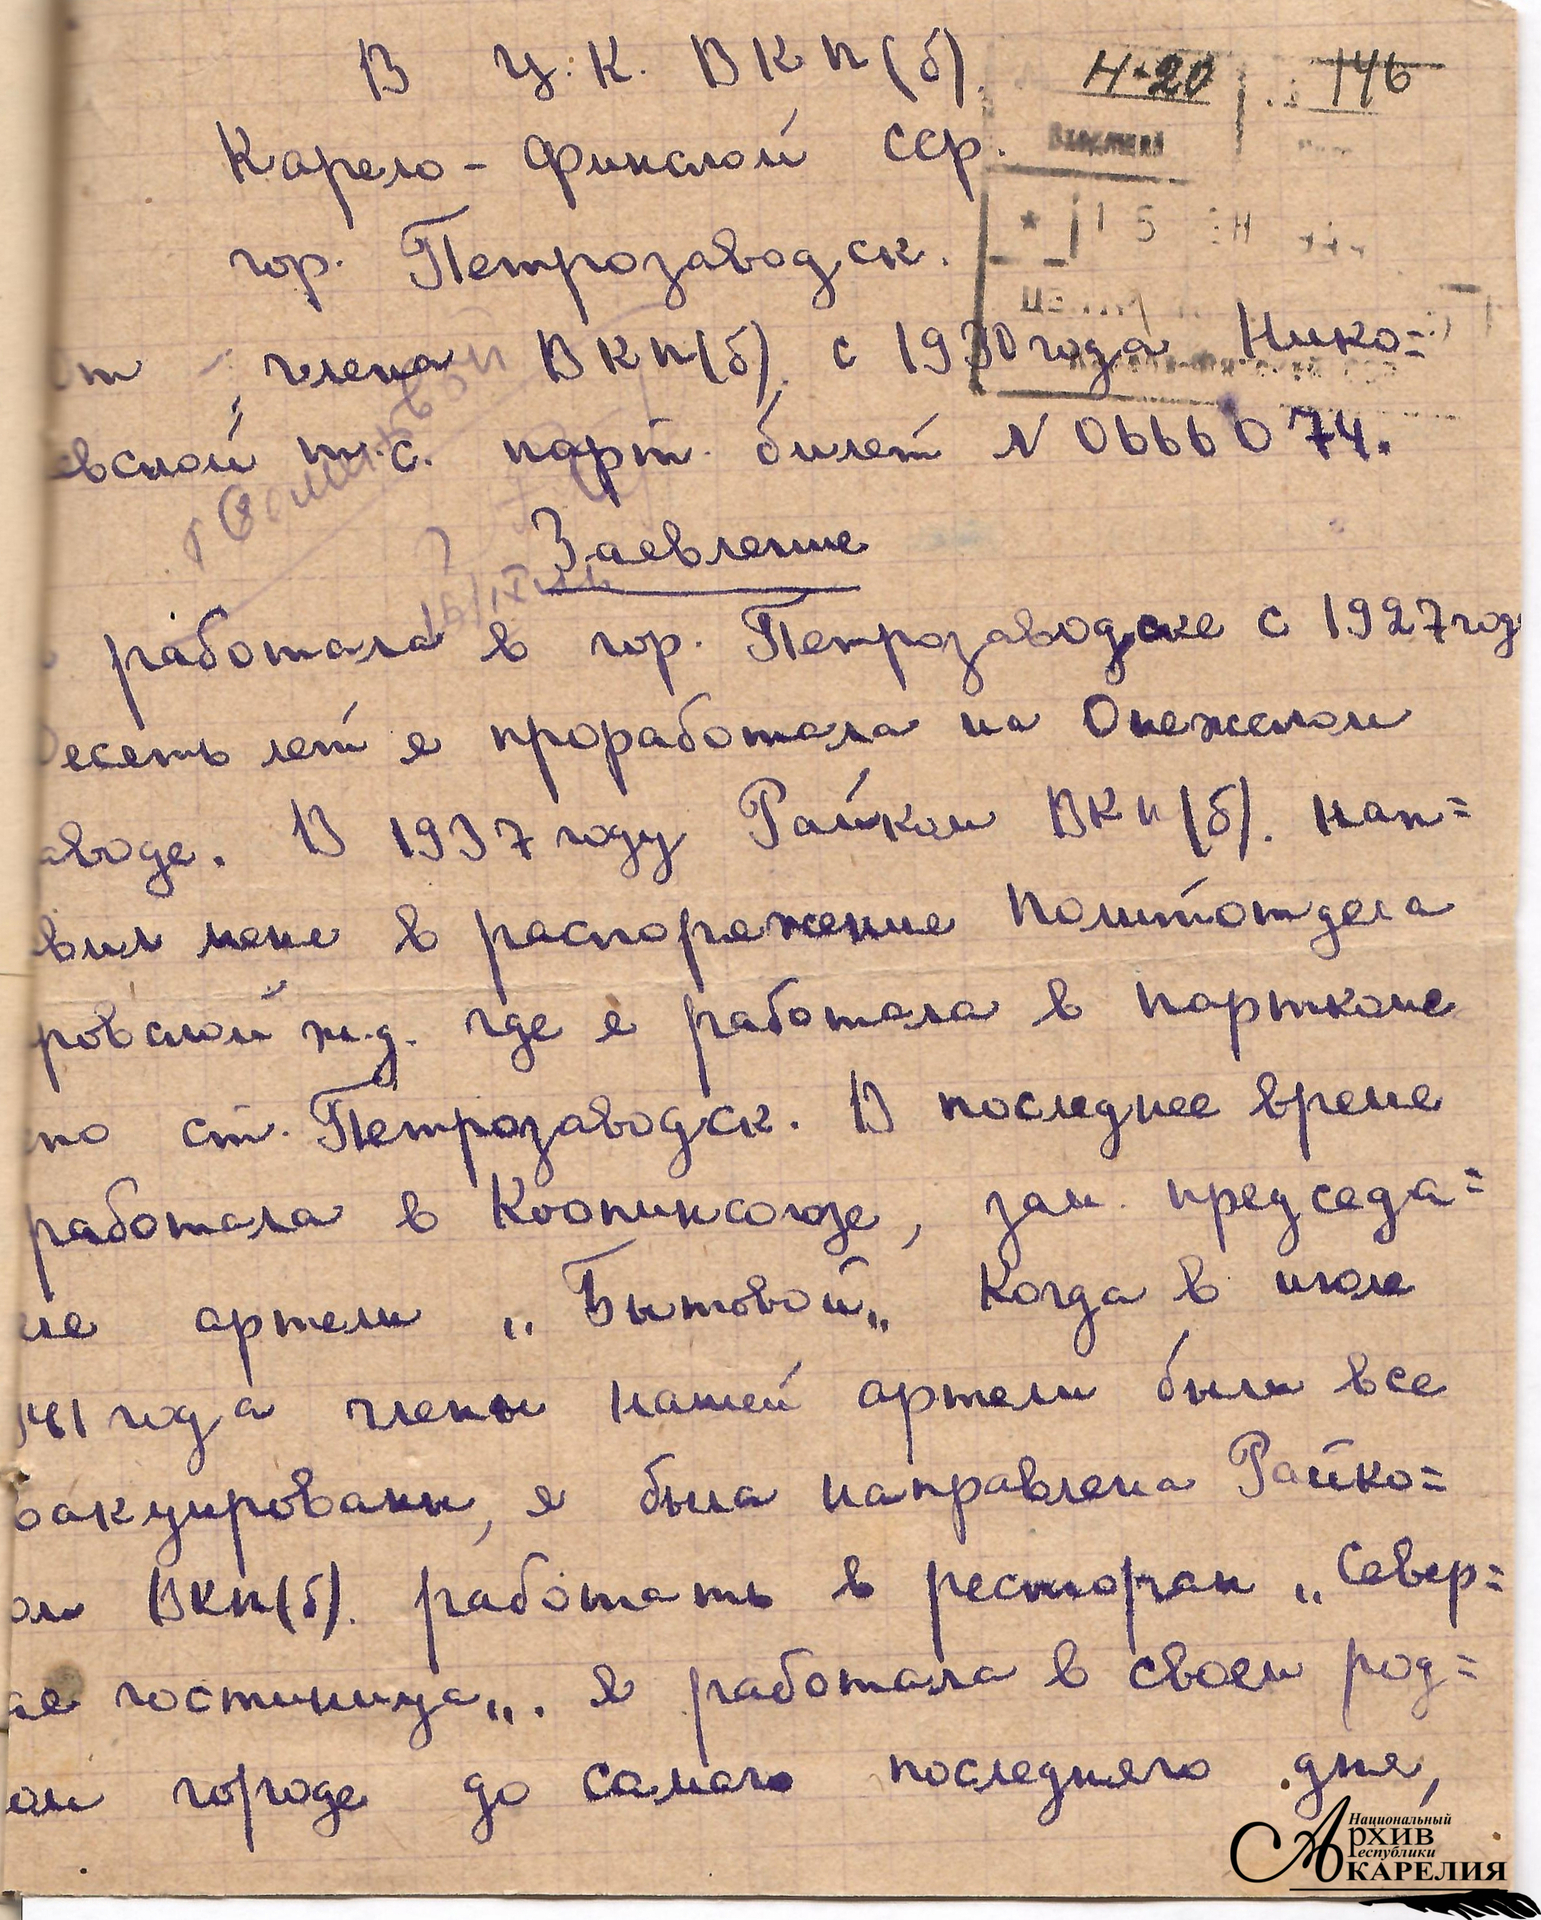 В Ц.К. ВКП(б)
Н-20 146
Карело-Финской ССР.
гор. Петрозаводск.
от члена ВКП(б). с 1930 года Нико=
евской т.с. парт. билет N 0666074.
Заевление
работала в гор. Петрозаводске с 1927 год
Десеть лет е проработала на Онежском
аводе. В 1937 году Райком ВКП(б). нап=
вил мене в распорежение Политотдела
ровской ж.д. где е работала в парткоме
по ст. Петрозаводск. В последнее време
работала в Коопинсоюзе, зам. председа=
ле артели „Бытовой„ Когда в июле
941 года члены нашей артели были все
вакуированы, е была направлена Райко=
ом ВКП(б). работать в ресторан „Север=
ае гостиница„. Я работала в своем род=
ом городе до самого последняго дня,
Национальный
Архив
Республики
Карелия